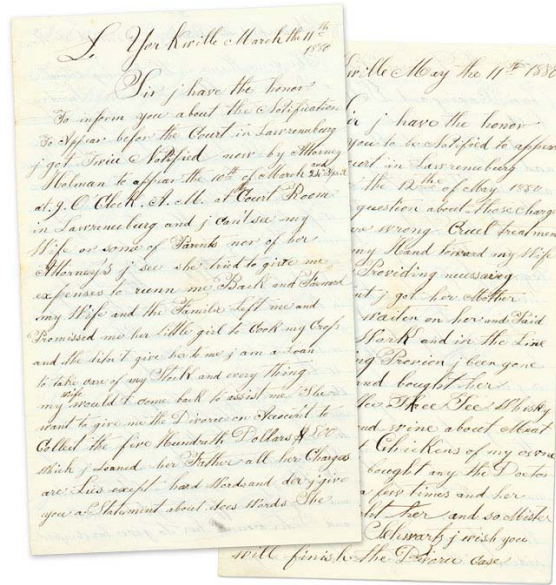 L. Yorkville March the 11th 1880
Sir j have the honor
To inform you about the Notification
To Appear befor the Court in Lawrenceburg
j got Twice Notified now by Attorney
Holman to appear the 10th of March and 24 April
at 9. O. Clock. A. M. at Court Room
in Lawrenceburg and j can't see my
Wife or some of Parents nor of her
Attorney's j see she tried to give me
expenses to runn me Back and
my Wife and the Familie Left me and
Promissed me her little girl to Cook my Crops
and the didn't give her to me j am a Loan
to take care of my Stock and every thing
my wife would't come back to assist me She
want to give me the Divorce on Account to
Collect the five Hundreth Dollars $500
which j Loaned her Father all her Charges
are Lies except hard Words and der j give
you a Statement about does Words She
ville May the 11th 1880
j have the honor
you to be Notified to appear
Court in Lawrenceburg
the 12th of May 1880
question about those Charg
wrong Cruel treatmen
my Hand toward my Wife
Providing necessary
j got her Mother
waiten on her and Paid
Work and in the Line
j been gone
and bought her
Thee Whisky
and wine about Meat
Chickens of my owne
bought any the Doctor
a few times and her
her and so Mister
Schwartz j wish you
will finish the Divorce case